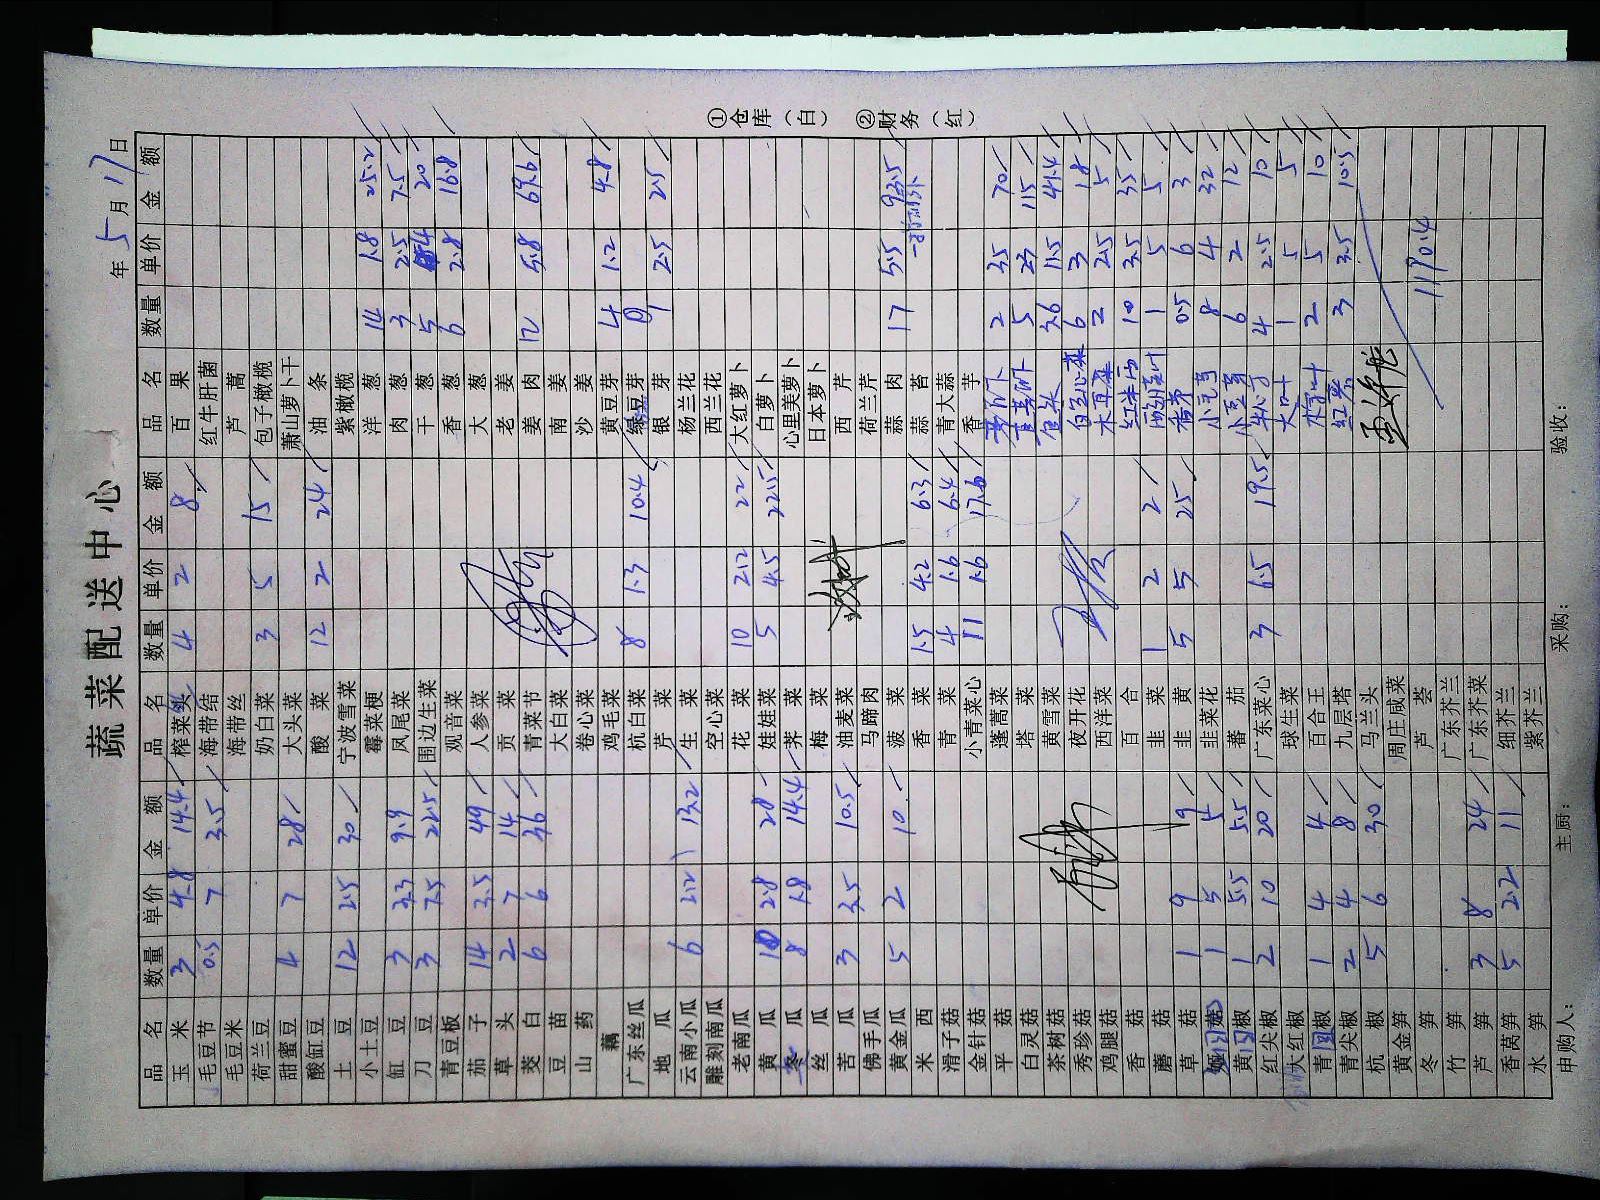 蔬菜配送中心
年 5 月 17 日
品名 数量 单价 金额 品名 数量 单价 金额 品名 数量 单价 金额
玉米 3 4.8 14.4 榨菜头 4 2 8 百果
毛豆节 0.5 7 3.5 海带结 红牛肝菌
毛豆米 海带丝 芦蒿
荷兰豆 奶白菜 3 5 15 包子橄榄
甜蜜豆 4 7 28 大头菜 萧山萝卜干
酸缸豆 酸菜 12 2 24 油条
土豆 12 2.5 30 宁波雪菜 紫橄榄
小土豆 霉菜梗 洋葱 14 1.8 25.2
缸豆 3 3.3 9.9 凤尾菜 肉葱 3 2.5 7.5
刀豆 3 7.5 22.5 围边生菜 干葱 5 4 20
青豆板 观音菜 香葱 6 2.8 16.8
茄子 14 3.5 49 人参菜 大葱
草头 2 7 14 贡菜 老姜
茭白 6 6 36 青菜节 姜肉 12 5.8 69.6
豆苗 大白菜 南姜
山药 卷心菜 沙姜
藕 鸡毛菜 黄豆芽 4 1.2 4.8
广东丝瓜 杭白菜 8 1.3 10.4 绿豆芽
地瓜 芹菜 银芽 1 2.5 2.5
云南小瓜 6 2.2 13.2 生菜 杨兰花
雕刻南瓜 空心菜 西兰花
老南瓜 花菜 10 2.2 22 大红萝卜
黄瓜 10 2.8 28 娃娃菜 5 4.5 22.5 白萝卜
冬瓜 8 1.8 14.4 荠菜 心里美萝卜
丝瓜 梅菜 日本萝卜
苦瓜 3 3.5 10.5 油麦菜 西芹
佛手瓜 马蹄肉 荷兰芹
黄金瓜 5 2 10 菠菜 蒜肉 17 5.5 93.5
米西 香菜 1.5 4.2 6.3 蒜苔
滑子菇 青菜 4 1.6 6.4 青大蒜
金针菇 小青菜心 11 1.6 17.6 香芋
平菇 蓬蒿菜 2 35 70
白灵菇 塔菜 5 23 115
茶树菇 黄雪菜 3.6 11.5 41.4
秀珍菇 夜开花 6 3 18
鸡腿菇 西洋菜 木耳菜 2 2.5 5
香菇 百合 红米苋 10 3.5 35
蘑菇 韭菜 1 2 2 1 5 5
草菇 1 9 9 韭黄 5 5 25 香茅 0.5 6 3
菇 1 5 5 韭菜花 8 4 32
黄椒 1 5.5 5.5 蕃茄 6 2 12
红尖椒 2 10 20 广东菜心 3 6.5 19.5 4 2.5 10
大红椒 球生菜 大叶 1 5 5
青椒 1 4 4 百合王 2 5 10
青尖椒 2 4 8 九层塔 红 3 3.5 10.5
杭椒 5 6 30 马兰头
黄金笋 周庄咸菜
冬笋 芦荟 1190.4
竹笋 广东芥兰
芦笋 3 8 24 广东芥菜
香莴笋 5 2.2 11 细芥兰
水笋 紫芥兰
申购人: 主厨: 采购: 验收:
①仓库(白) ②财务(红)